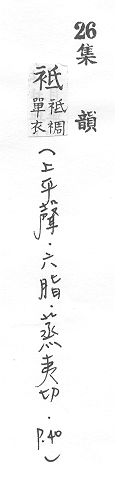 26 集韻
袛 袛裯
單衣
(上平聲.六脂.蒸夷切.P.40)